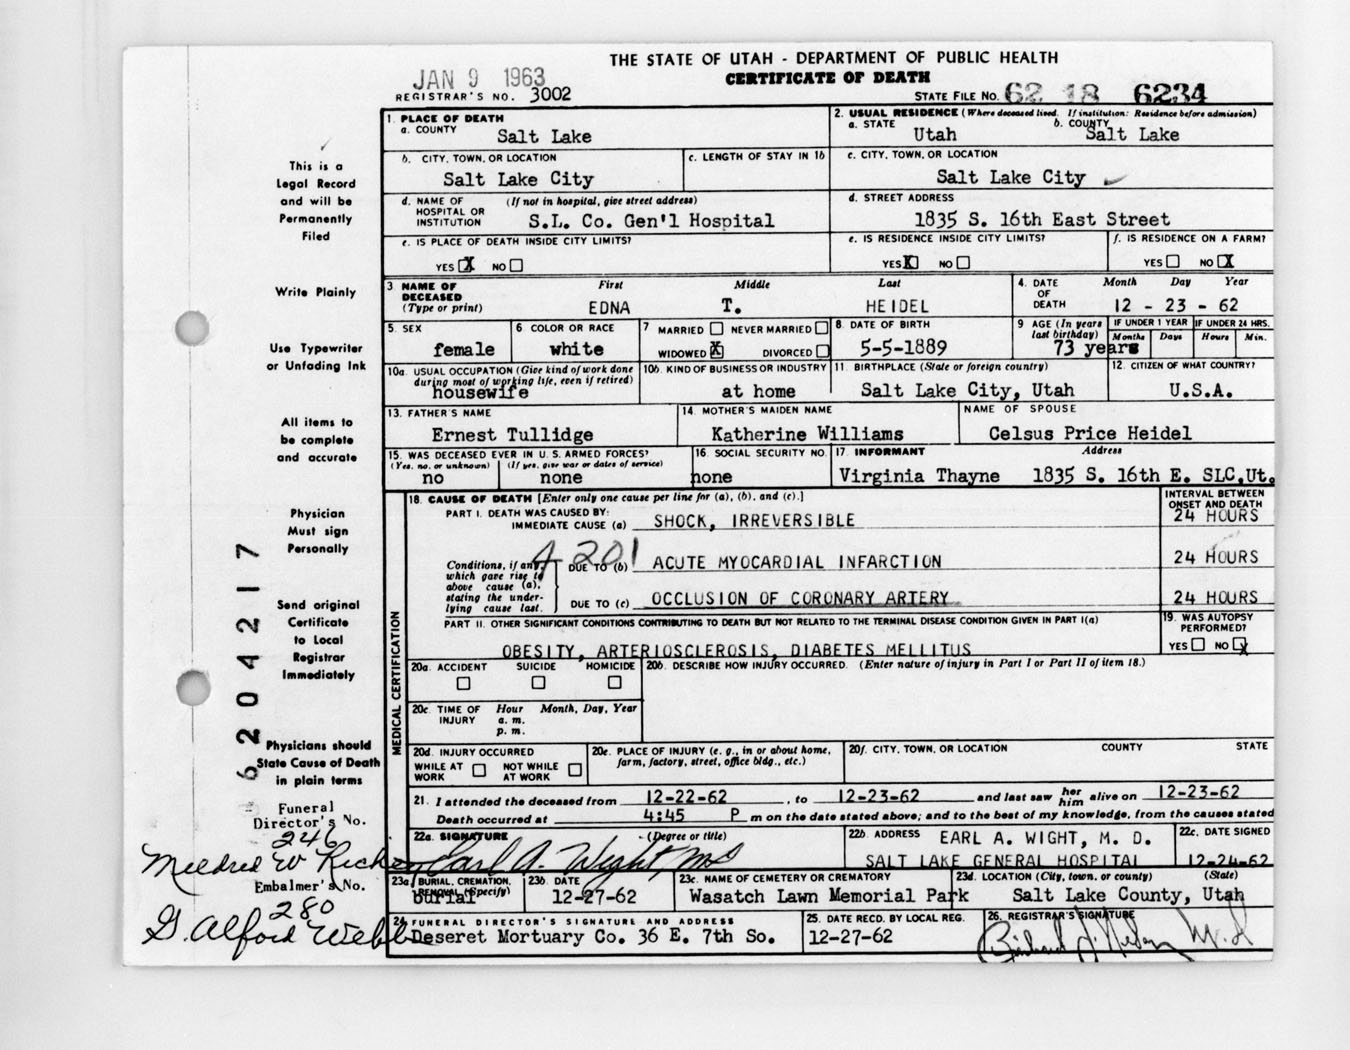 THE STATE OF UTAH - DEPARTMENT OF PUBLIC HEALTH
JAN 9 1963
CERTIFICATE OF DEATH
REGISTRAR'S NO. 3002
STATE FILE NO. 62 18 6234
This is a
Legal Record
and will be
Permanently
Filed
Write Plainly
Use Typewriter
or Unfading Ink
All items to
be complete
and accurate
Physician
Must sign
Personally
Send original
Certificate
to Local
Registrar
Immediately
Physicians should
State Cause of Death
in plain terms
Funeral
Director's No.
246
Embalmer's No.
280
G. Alford Webb
6204217
1. PLACE OF DEATH
a. COUNTY Salt Lake
2. USUAL RESIDENCE (Where deceased lived. If institution: Residence before admission)
a. STATE Utah b. COUNTY Salt Lake
b. CITY, TOWN, OR LOCATION Salt Lake City
c. LENGTH OF STAY IN 1b
c. CITY, TOWN, OR LOCATION Salt Lake City
d. NAME OF HOSPITAL OR INSTITUTION (If not in hospital, give street address) S.L. Co. Gen'l Hospital
d. STREET ADDRESS 1835 S. 16th East Street
e. IS PLACE OF DEATH INSIDE CITY LIMITS?
YES X NO
e. IS RESIDENCE INSIDE CITY LIMITS?
YES X NO
f. IS RESIDENCE ON A FARM?
YES NO X
3. NAME OF DECEASED (Type or print) First Middle Last
EDNA T. HEIDEL
4. DATE OF DEATH Month Day Year
12 - 23 - 62
5. SEX female
6 COLOR OR RACE white
7 MARRIED NEVER MARRIED
WIDOWED X DIVORCED
8 DATE OF BIRTH 5-5-1889
9 AGE (In years last birthday) 73 years
IF UNDER 1 YEAR Months Days
IF UNDER 24 HRS. Hours Min.
10a. USUAL OCCUPATION (Give kind of work done during most of working life, even if retired) housewife
10b. KIND OF BUSINESS OR INDUSTRY at home
11. BIRTHPLACE (State or foreign country) Salt Lake City, Utah
12. CITIZEN OF WHAT COUNTRY? U.S.A.
13. FATHER'S NAME Ernest Tullidge
14. MOTHER'S MAIDEN NAME Katherine Williams
NAME OF SPOUSE Celsus Price Heidel
15. WAS DECEASED EVER IN U.S. ARMED FORCES?
(Yes, no, or unknown) no (If yes, give war or dates of service) none
16. SOCIAL SECURITY NO. none
17. INFORMANT Address
Virginia Thayne 1835 S. 16th E. SLC,Ut.
MEDICAL CERTIFICATION
18. CAUSE OF DEATH [Enter only one cause per line for (a), (b), and (c).]
INTERVAL BETWEEN ONSET AND DEATH
PART I. DEATH WAS CAUSED BY:
IMMEDIATE CAUSE (a) SHOCK, IRREVERSIBLE 24 HOURS
Conditions, if any, which gave rise to above cause (a), stating the underlying cause last.
4 201
DUE TO (b) ACUTE MYOCARDIAL INFARCTION 24 HOURS
DUE TO (c) OCCLUSION OF CORONARY ARTERY 24 HOURS
PART II. OTHER SIGNIFICANT CONDITIONS CONTRIBUTING TO DEATH BUT NOT RELATED TO THE TERMINAL DISEASE CONDITION GIVEN IN PART I(a)
OBESITY, ARTERIOSCLEROSIS, DIABETES MELLITUS
19. WAS AUTOPSY PERFORMED?
YES NO X
20a. ACCIDENT SUICIDE HOMICIDE
20b. DESCRIBE HOW INJURY OCCURRED. (Enter nature of injury in Part I or Part II of item 18.)
20c. TIME OF INJURY Hour Month, Day, Year
a. m.
p. m.
20d. INJURY OCCURRED
WHILE AT WORK NOT WHILE AT WORK
20e. PLACE OF INJURY (e. g., in or about home, farm, factory, street, office bldg., etc.)
20f. CITY, TOWN, OR LOCATION COUNTY STATE
21. I attended the deceased from 12-22-62, to 12-23-62 and last saw her him alive on 12-23-62
Death occurred at 4:45 P m on the date stated above; and to the best of my knowledge, from the causes stated
22a. SIGNATURE (Degree or title) Earl A. Wight, MD
22b. ADDRESS EARL A. WIGHT, M. D.
SALT LAKE GENERAL HOSPITAL
22c. DATE SIGNED 12-24-62
23a. BURIAL, CREMATION, REMOVAL (Specify) burial
23b. DATE 12-27-62
23c. NAME OF CEMETERY OR CREMATORY Wasatch Lawn Memorial Park
23d. LOCATION (City, town, or county) (State) Salt Lake County, Utah
24 FUNERAL DIRECTOR'S SIGNATURE AND ADDRESS
Deseret Mortuary Co. 36 E. 7th So.
25. DATE RECD. BY LOCAL REG. 12-27-62
26. REGISTRAR'S SIGNATURE